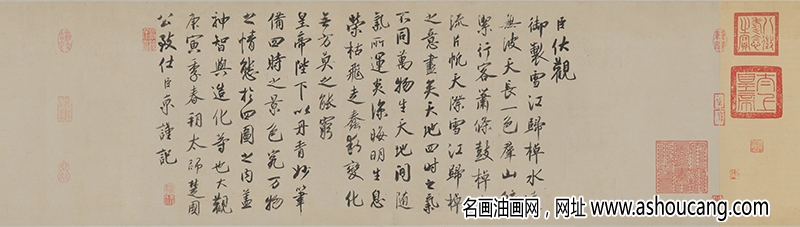 八徵耄念之寶
太上皇帝
臣伏觀
御製雪江歸棹水
無波天長一色羣山
潔行客蕭條鼓棹
流片帆天際雪江歸棹
之意盡矣天地四時之氣
不同萬物生天地間隨
氣所運炎涼晦明生息
榮枯飛走蠢動變化
無方莫之能窮
皇帝陛下以丹青妙筆
備四時之景色究萬物
之情態於四圖之內蓋
神智與造化等也大觀
庚寅季春朔太師楚國
公致仕臣京謹記
名画油画网，网址 www.ashoucang.com